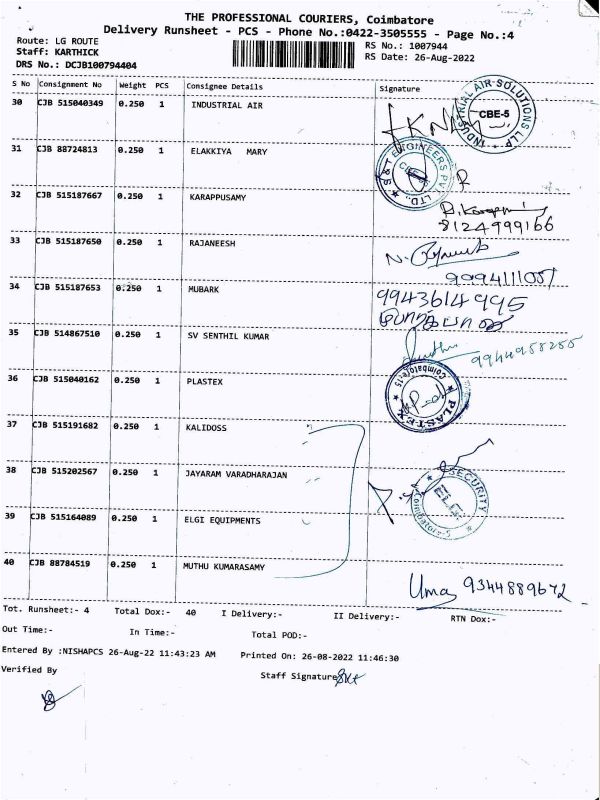 THE PROFESSIONAL COURIERS, Coimbatore
Delivery Runsheet - PCS - Phone No.:0422-3505555 - Page No.:4
Route: LG ROUTE
Staff: KARTHICK
DRS No.: DCJB100794404
RS No.: 1007944
RS Date: 26-Aug-2022
S No Consignment No Weight PCS Consignee Details Signature
30 CJB 515040349 0.250 1 INDUSTRIAL AIR
INDUSTRIAL AIR SOLUTIONS LLP
CBE-5
31 CJB 88724813 0.250 1 ELAKKIYA MARY
S&T ENGINEERS PVT. LTD.
32 CJB 515187667 0.250 1 KARAPPUSAMY
8124999166
33 CJB 515187650 0.250 1 RAJANEESH
34 CJB 515187653 0.250 1 MUBARK
9943614995
35 CJB 514867510 0.250 1 SV SENTHIL KUMAR
9944958255
36 CJB 515040162 0.250 1 PLASTEX
PLASTEX
Coimbatore-15
37 CJB 515191682 0.250 1 KALIDOSS
38 CJB 515202567 0.250 1 JAYARAM VARADHARAJAN
SECURITY
ELGI
Coimbatore-5
39 CJB 515164089 0.250 1 ELGI EQUIPMENTS
40 CJB 88784519 0.250 1 MUTHU KUMARASAMY
Uma 9344889672
Tot. Runsheet:- 4 Total Dox:- 40 I Delivery:- II Delivery:- RTN Dox:-
Out Time:- In Time:- Total POD:-
Entered By :NISHAPCS 26-Aug-22 11:43:23 AM Printed On: 26-08-2022 11:46:30
Verified By Staff Signature